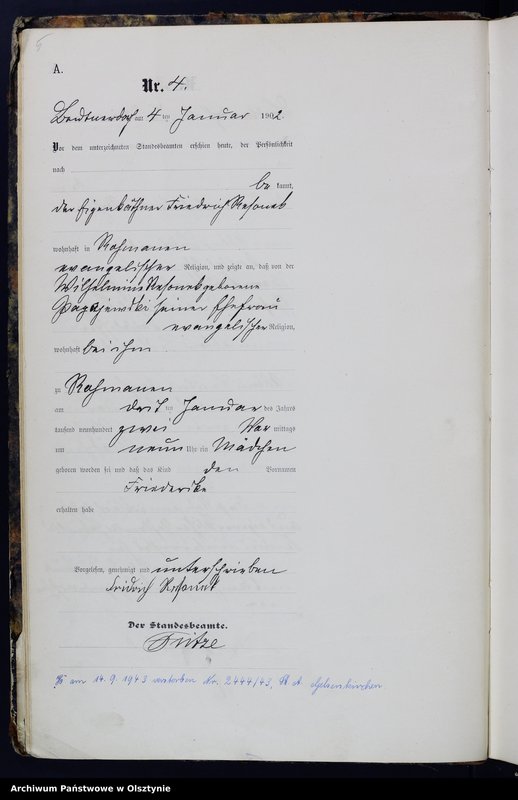 5
A.
Nr. 4.
Beutnerdorf am 4 ten Januar 1902.
Vor dem unterzeichneten Standesbeamten erschien heute, der Persönlichkeit
nach
be kannt,
der Eigenkäthner Friedrich
wohnhaft in Rohmanen
evangelischer Religion, und zeigte an, daß von der
Wilhelmine geborene
seiner Ehefrau
evangelischer Religion,
wohnhaft bei ihm
zu Rohmanen
am drit ten Januar des Jahres
tausend neunhundert zwei Vor mittags
um neun Uhr ein Mädchen
geboren worden sei und daß das Kind den Vornamen
Friederike
erhalten habe
Vorgelesen, genehmigt und unterschrieben
Fridrich
Der Standesbeamte.
am 14.9.1943 verstorben Nr. 2444/43, St. A. Gelsenkirchen.
Archiwum Państwowe w Olsztynie